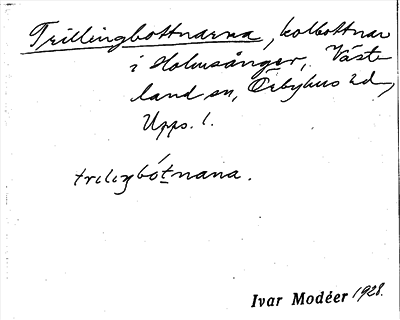 Trillingbottnarna, kolbottnar
i Holmsånger, Väst-
land sn, Örbyhus hd,
Upps. l.
trilıŋbótnana.
Ivar Modéer 1928.